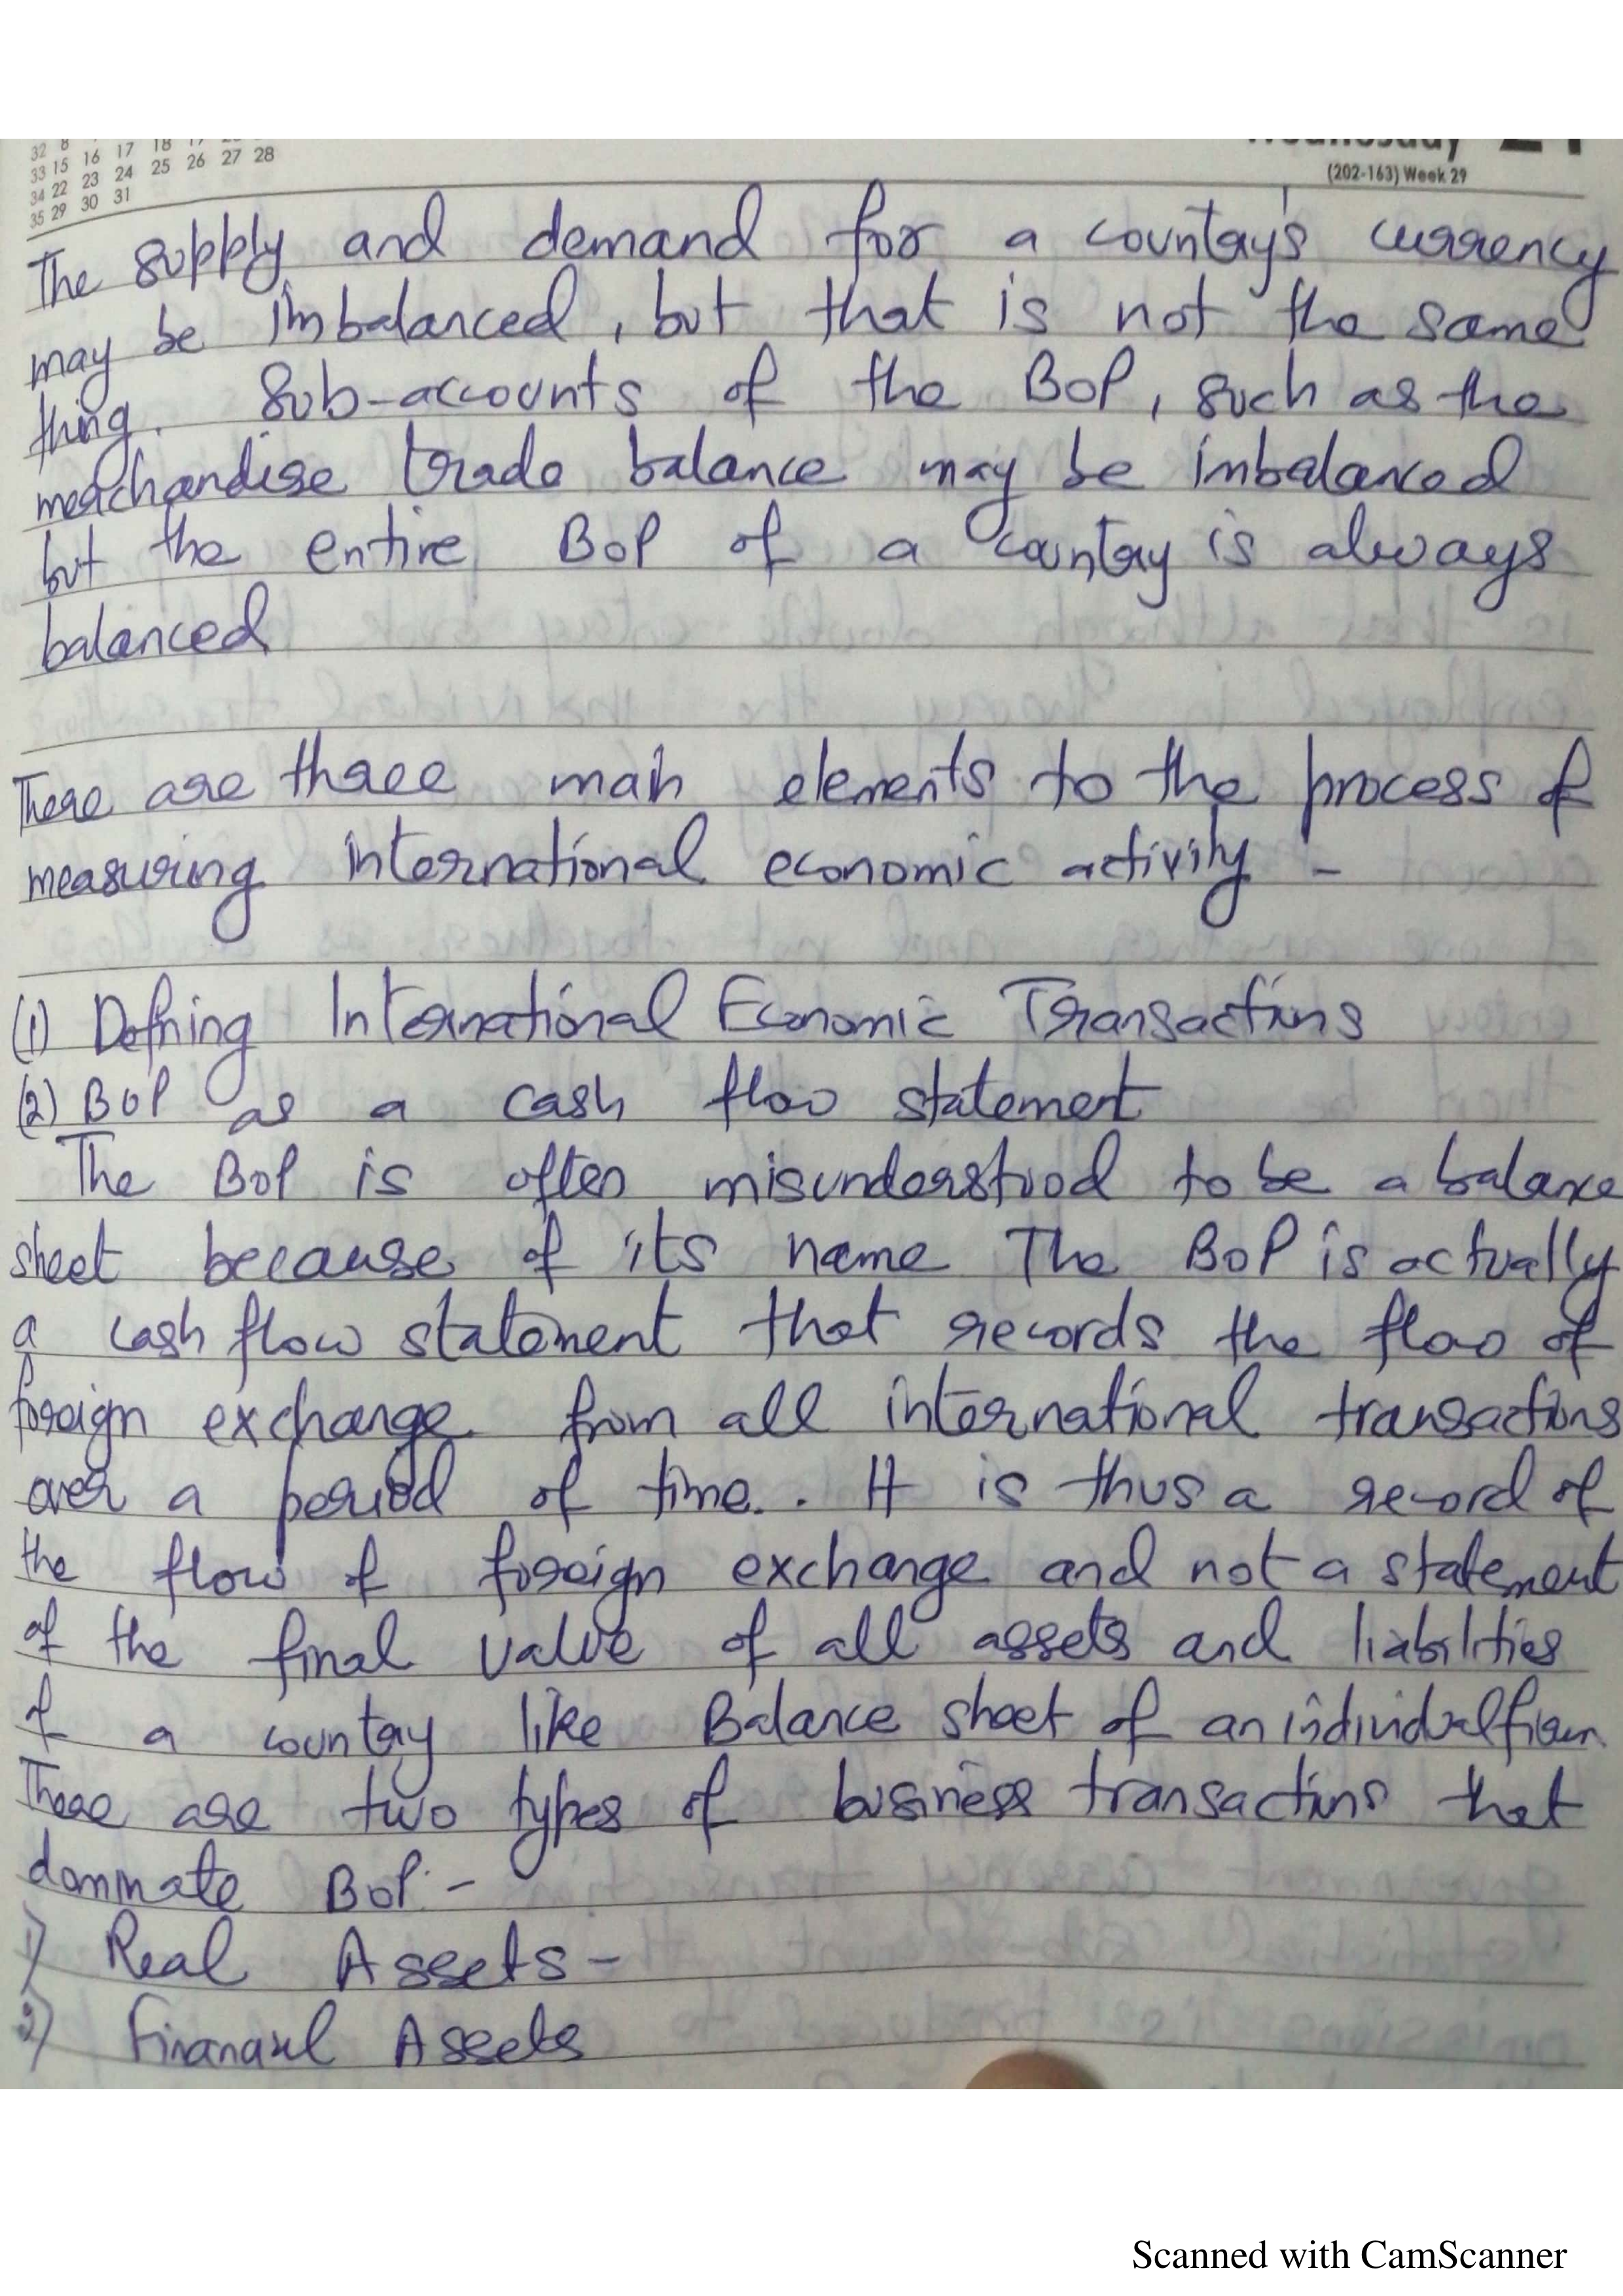 32 8
33 15 16 17 18
34 22 23 24 25 26 27 28
35 29 30 31
Wednesday 21
(202-163) Week 29
The supply and demand for a country's currency
may be imbalanced, but that is not the same
thing. Sub-accounts of the BOP, such as the
merchandise trade balance may be imbalanced
but the entire BOP of a country is always
balanced
There are three main elements to the process of
measuring international economic activity -
(1) Defining International Economic Transactions
(2) BOP as a cash flow statement
The BOP is often misunderstood to be a balance
sheet because of its name The BOP is actually
a cash flow statement that records the flow of
foreign exchange from all international transactions
over a period of time. . It is thus a record of
the flow of foreign exchange and not a statement
of the final value of all assets and liabilities
of a country like Balance sheet of an individual firm.
There are two types of business transactions that
dominate BOP:-
1) Real Assets -
2) Financial Assets
Scanned with CamScanner